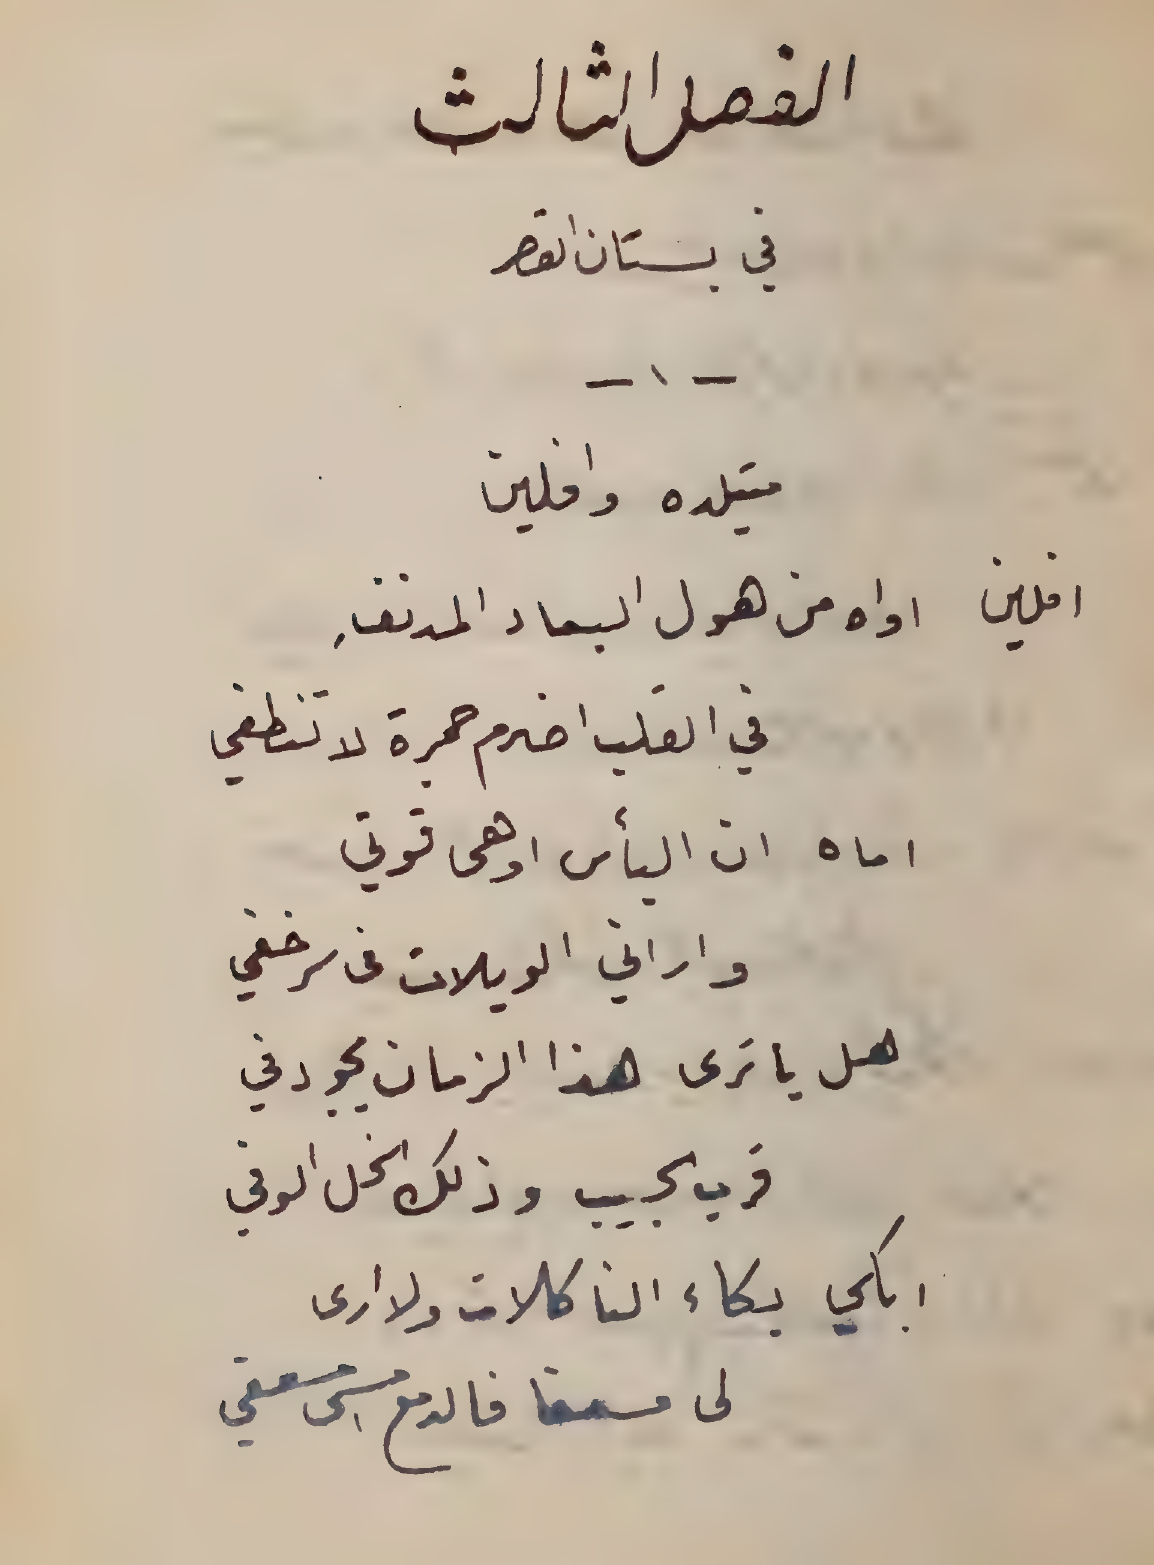 الفصل الثالث
في بستان القصر
— ١ —
متيلده وافلين
افلين اواه من هول البعاد المدنف
في القلب اضرم جمرة لا تنطفي
اماه ان اليأس اوهى قوتي
واراني الويلات في سر خفي
هل يا ترى هذا الزمان يجود في
قرب الحبيب وذلك الخل الوفي
ابكي بكاء الثاكلات ولا ارى
لى مسعفا فالدمع امسى مسعفي